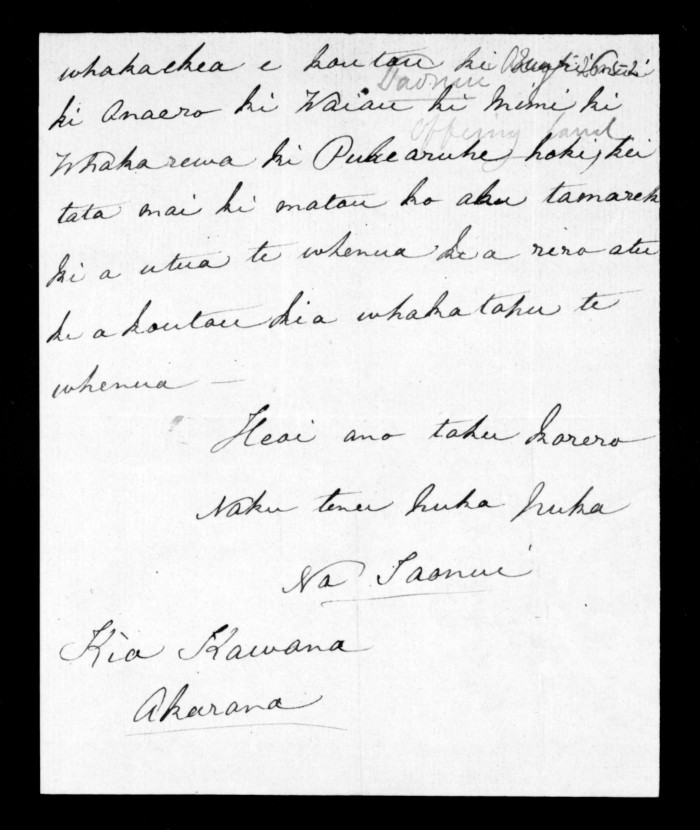 whakaekea e koutou ki
Taonui
ki Anaero ki Waiau ki Mimi ki
Offering land
Whakarewa ki Pukearuhe, hoki, kei
tata mai ki matou ko aku tamarek
ki a utua te whenua kia riro atu
ki a koutou kia whakatahu te
whenua —
Heoi ano taku korero
Naku tenei puka puka
Na Taonui
Kia Kawana
Akarana